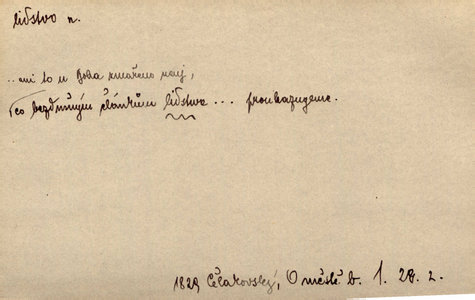 lidstvo n.
..ani to u Boha zmařeno není,
co bezdušným článkům lidstva ... proukazujeme.
1829 Čelakovský, O městě b. 1. 28. 2.